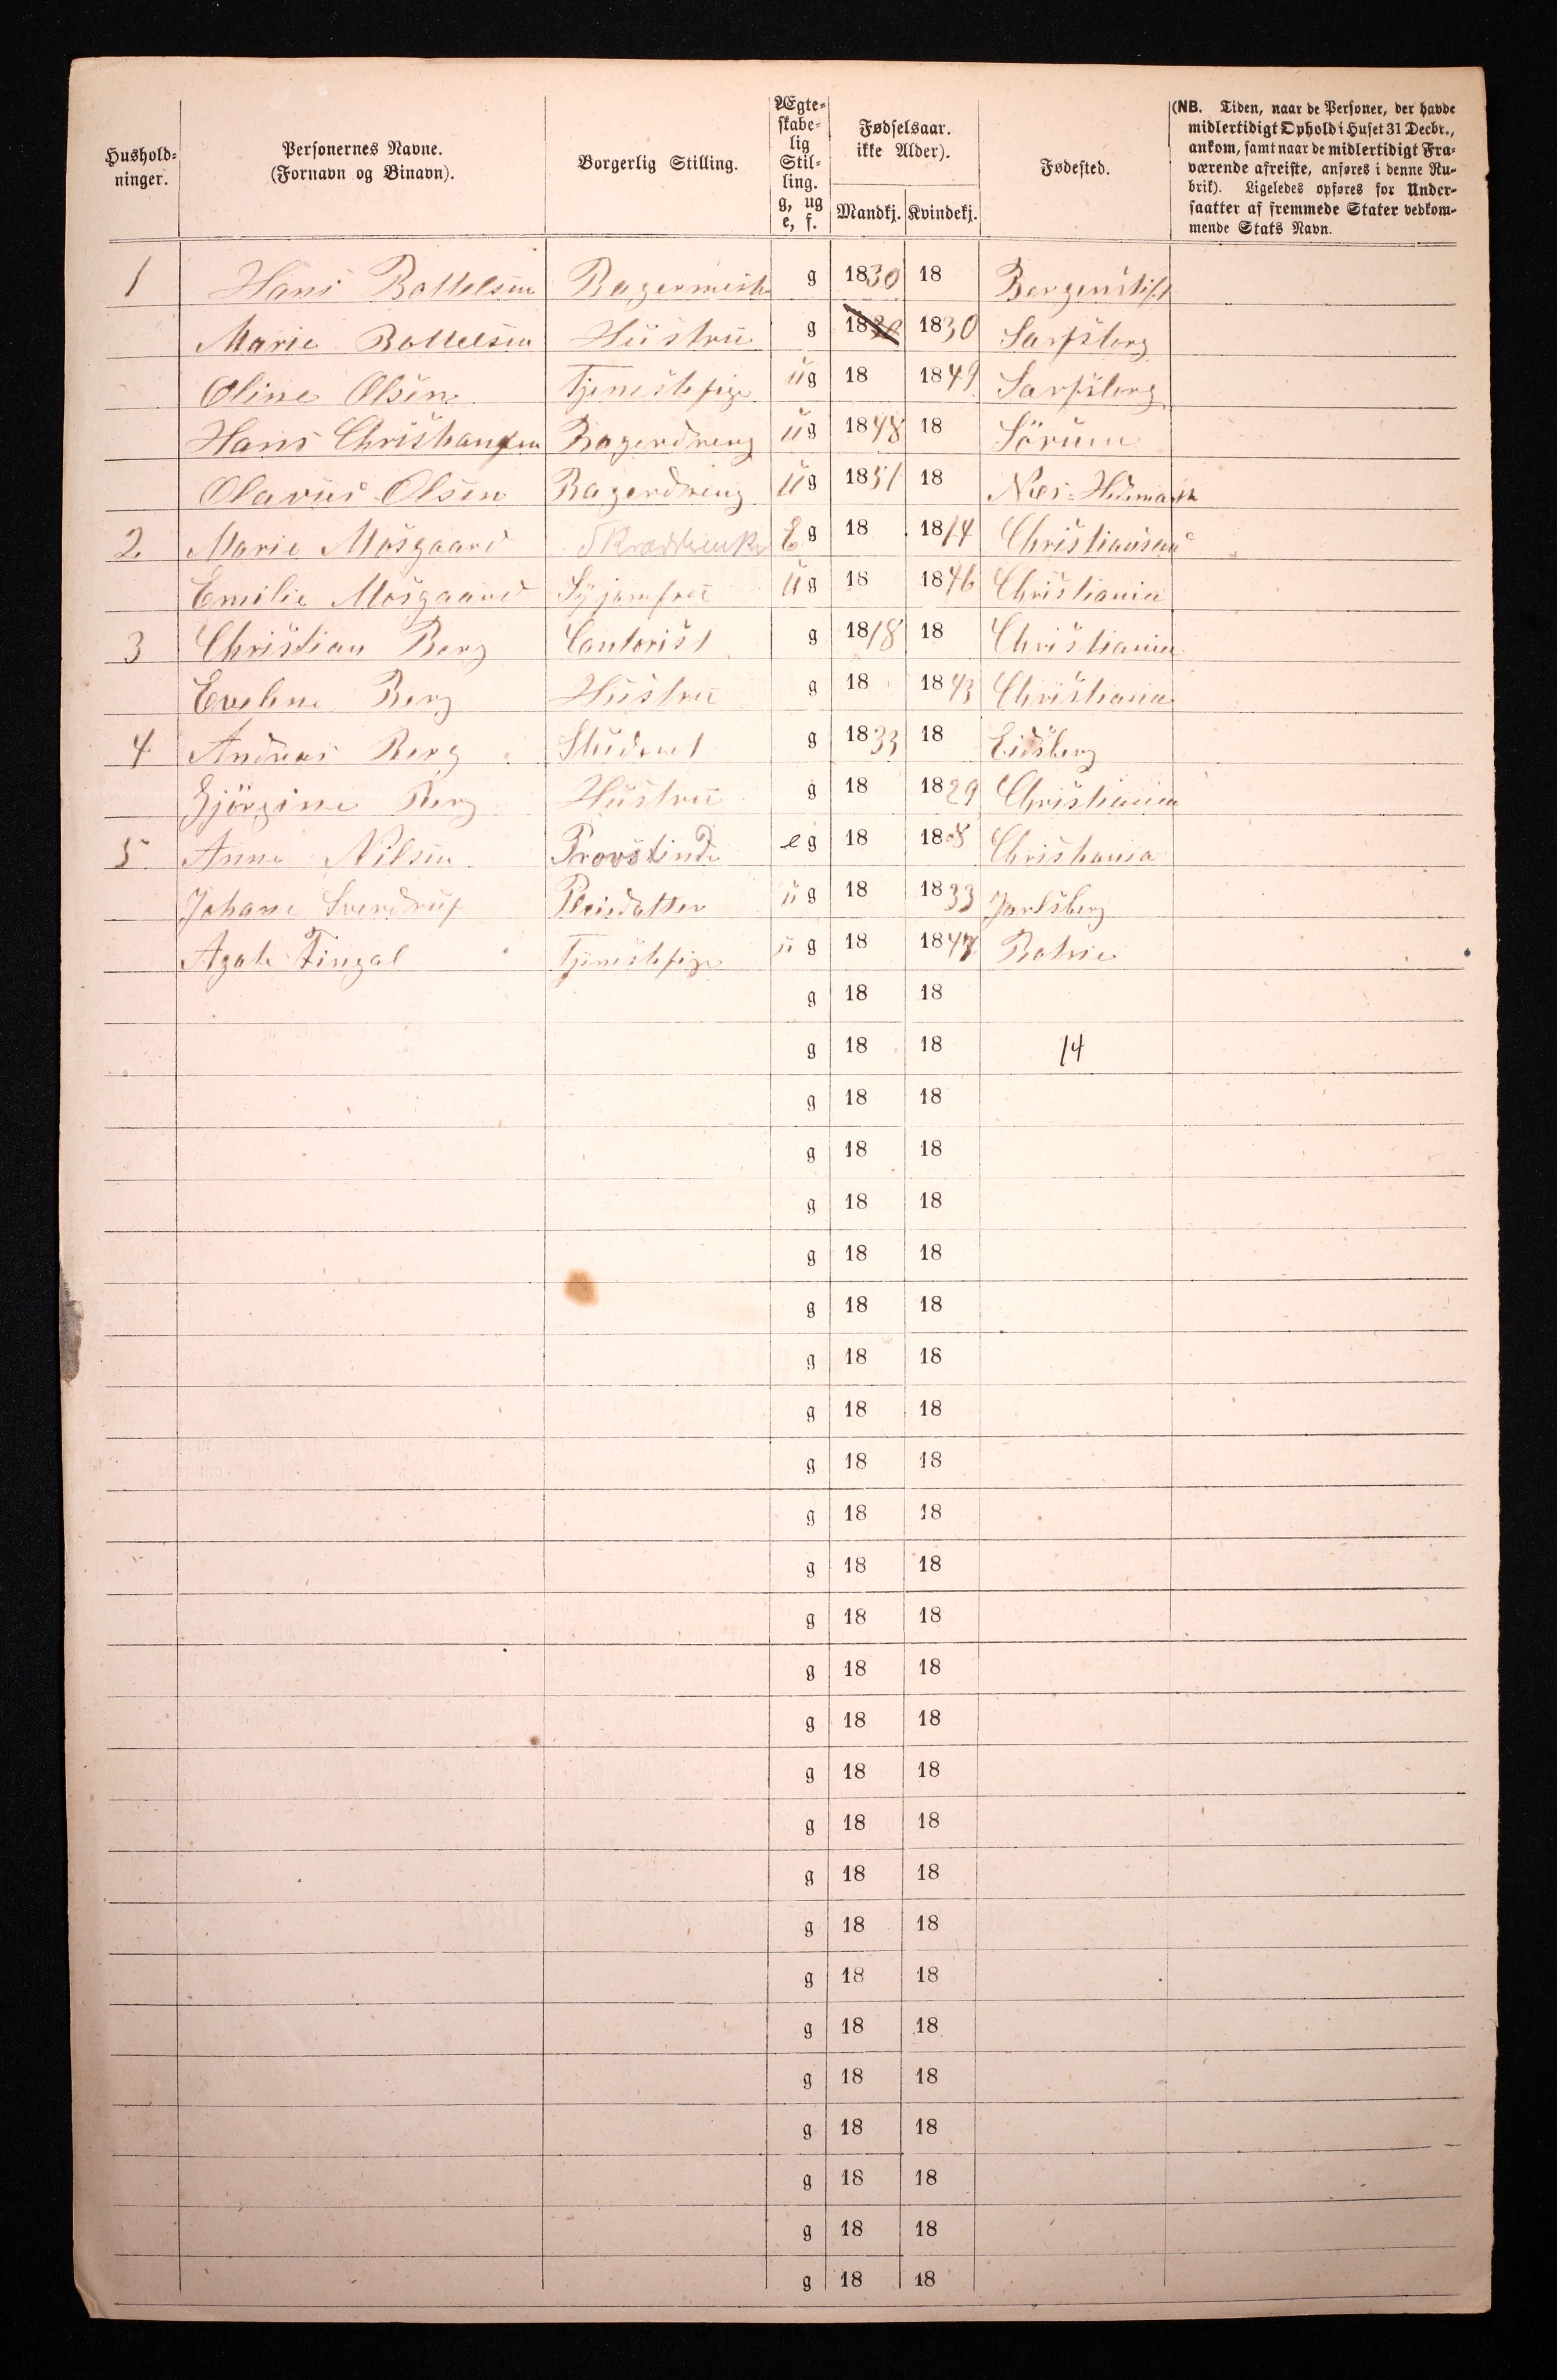 Hushold-
ninger.
Personernes Navne.
(Fornavn og Binavn).
Borgerlig Stilling.
Ægte-
skabe-
lig
Stil-
ling.
g, ug
e, f.
Fødselsaar.
ikke Alder).
Mandkj. Kvindekj.
Fødested.
(NB. Tiden, naar de Personer, der havde
midlertidigt Ophold i Huset 31 Decbr.,
ankom, samt naar de midlertidigt Fra-
værende afreiste, anføres i denne Ru-
brik). Ligeledes opføres for Under-
saatter af fremmede Stater vedkom-
mende Stats Navn.
1 Hans Bottelsen Bagermestr g 1830 18 Bergenstift
Marie Bottelsen Hustru g 1830 1830 Sarpsborg
Oline Olsen Tjenestepige ug 18 1849 Sarpsborg
Hans Christiansen Bagerdreng ug 1848 18 Sörum
Olavus Olsen Bagerdreng ug 1851 18 Næs Hedemark
2 Marie Mosgaard Eg 18 1814 Christiansand
Emilie Mosgaard Syjomfru ug 18 1846 Christiania
3 Christian Berg Contorist g 1818 18 Christiania
Eveline Berg Hustru g 18 1843 Christiania
4 Andreas Berg Student g 1833 18 Eidsberg
Gjörgine Berg Hustru g 18 1829 Christiania
5 Anne Nilsen Provstinde eg 18 18 Christiania
Johane Sverdrup Pleiedatter ug 18 1833 Jarlsberg
Agate Fingal Tjenestepige ug 18 184
g 18 18
g 18 18 14
g 18 18
g 18 18
g 18 18
g 18 18
g 18 18
g 18 18
g 18 18
g 18 18
g 18 18
g 18 18
g 18 18
g 18 18
g 18 18
g 18 18
g 18 18
g 18 18
g 18 18
g 18 18
g 18 18
g 18 18
g 18 18
g 18 18
g 18 18
g 18 18